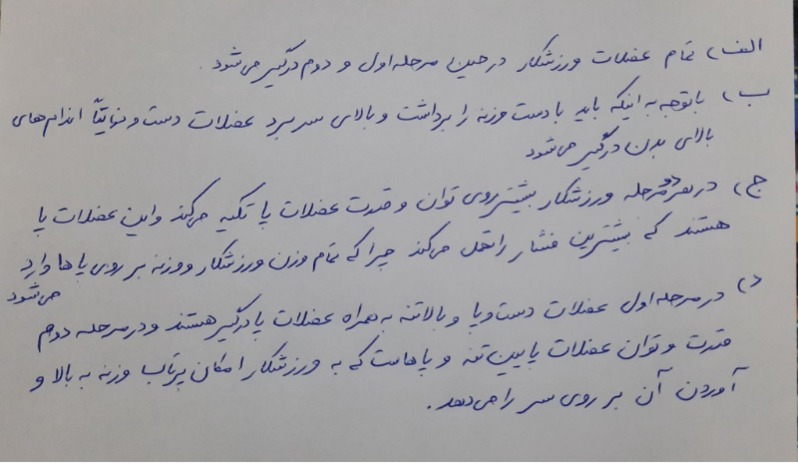 الف) تمام عضلات ورزشکار در حین مرحله اول و دوم درگیر می‌شود.
ب) با توجه به اینکه باید با دست وزنه را برداشت و بالای سر برد عضلات دست و نهایتاً اندام‌های
بالای بدن درگیر می‌شود
ج) در هر دو مرحله ورزشکار بیشتر روی توان و قدرت عضلات پا تکیه می‌کند و این عضلات پا
هستند که بیشترین فشار را تحمل می‌کند چرا که تمام وزن ورزشکار و وزنه بر روی پاها وارد
می‌شود
د) در مرحله اول عضلات دست و پا و بالاتنه به همراه عضلات پا درگیر هستند و در مرحله دوم
قدرت و توان عضلات پایین تنه و پاهاست که به ورزشکار امکان پرتاب وزنه به بالا و
آوردن آن بر روی سر را می‌دهد.